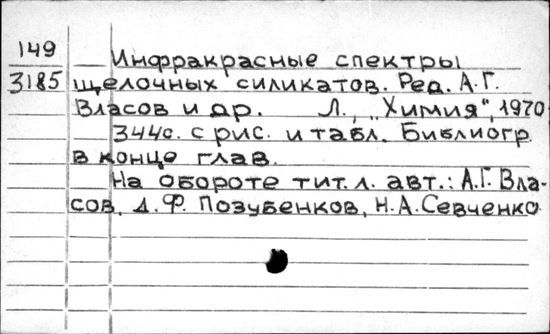 149 Инфракрасные спектры
3185 щелочных силикатов. Ред. А.Г.
Власов и др. Л., „Химия“, 1970
344с. с рис. и табл. Библиогр.
в конце глав.
На обороте тит. л. авт.: А.Г. Вла-
сов, Д.Ф. Позубенков, Н.А. Севченко